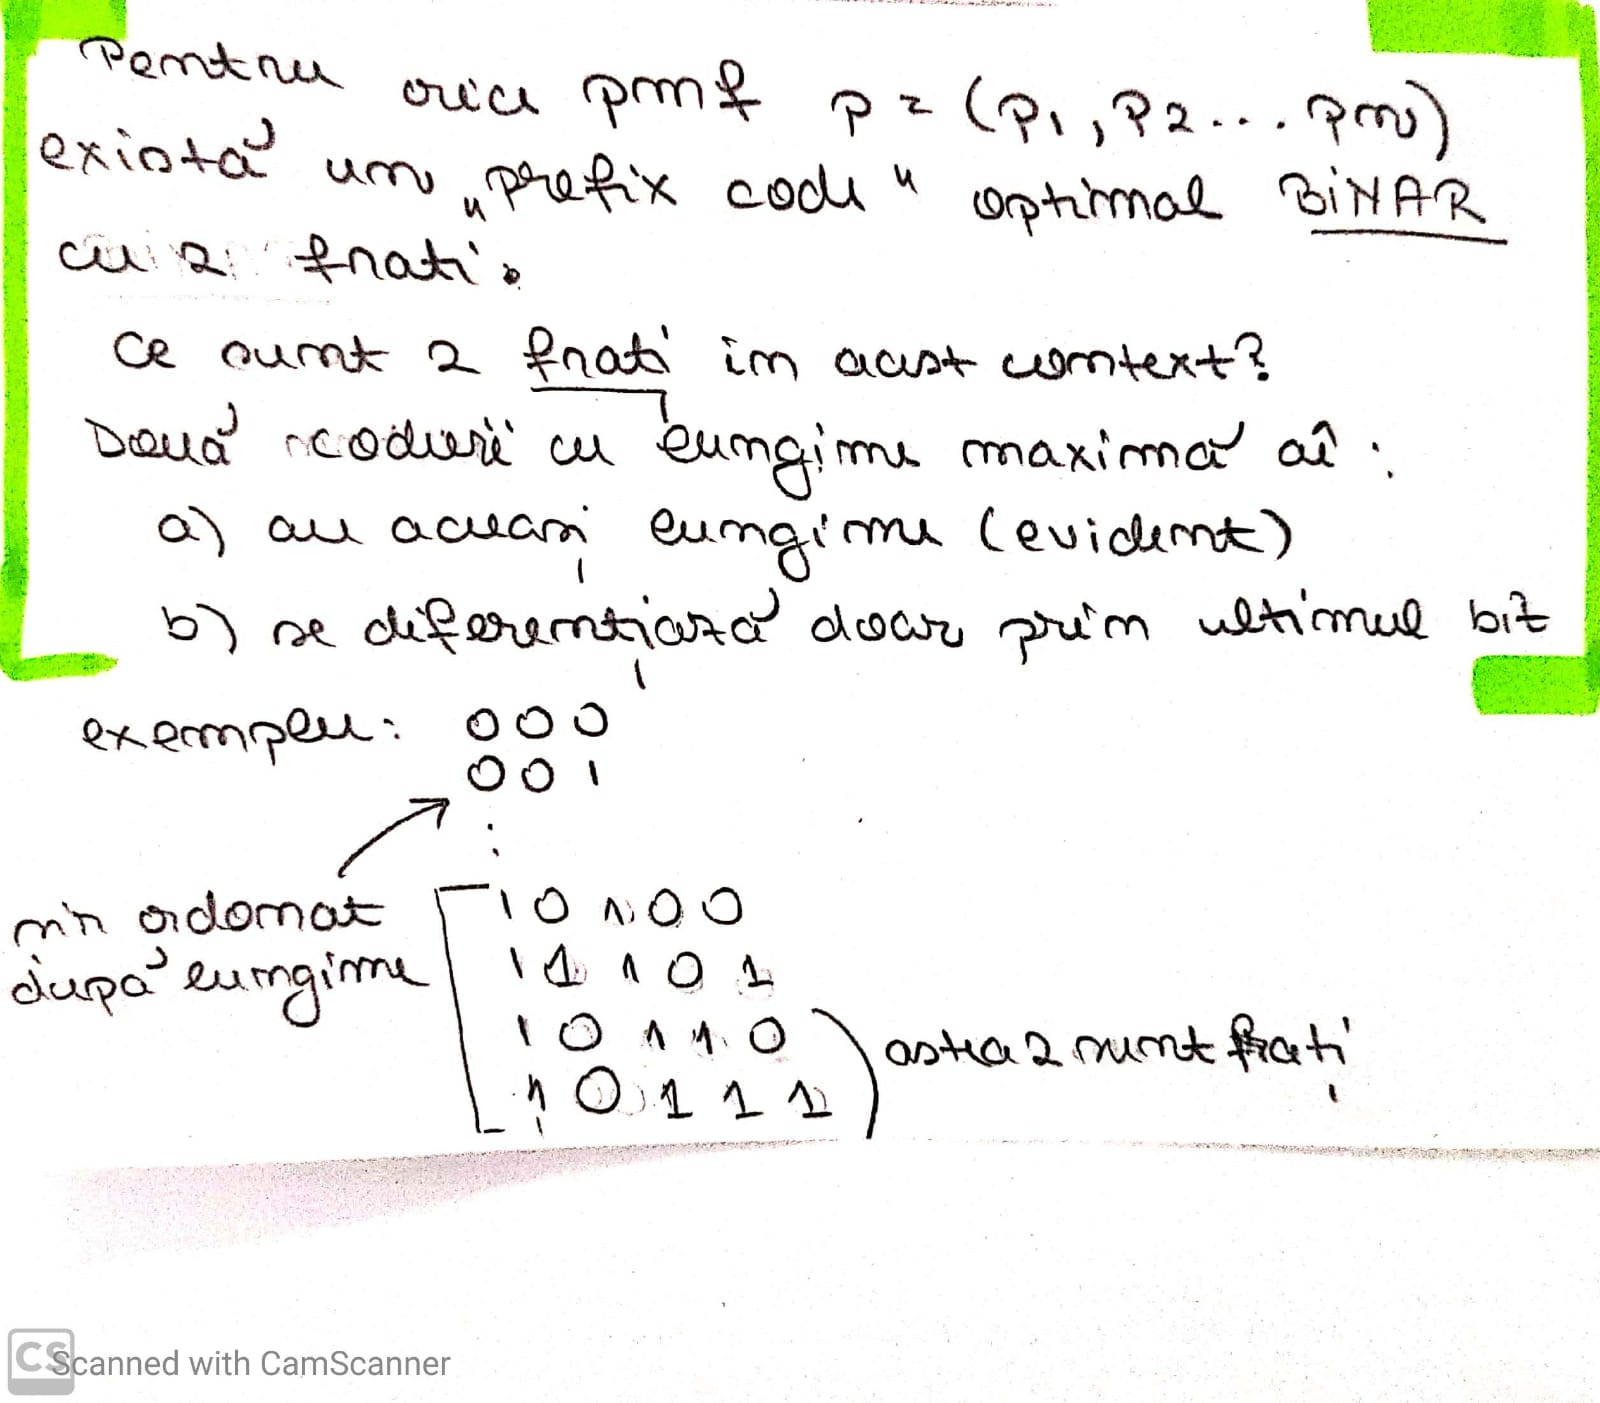 Pentru orice pmf p = (p1, p2 ... pn)
există un „prefix code" optimal BINAR
cu 2 frati.
Ce sunt 2 frați în acest context?
Două coduri cu lungime maximă aî:
a) au aceeași lungime (evident)
b) se diferențiază doar prin ultimul bit
exemplu: 000
001
⋮
șir ordonat
după lungime
10100
11101
10110
10111
astea 2 sunt frați
CS Scanned with CamScanner